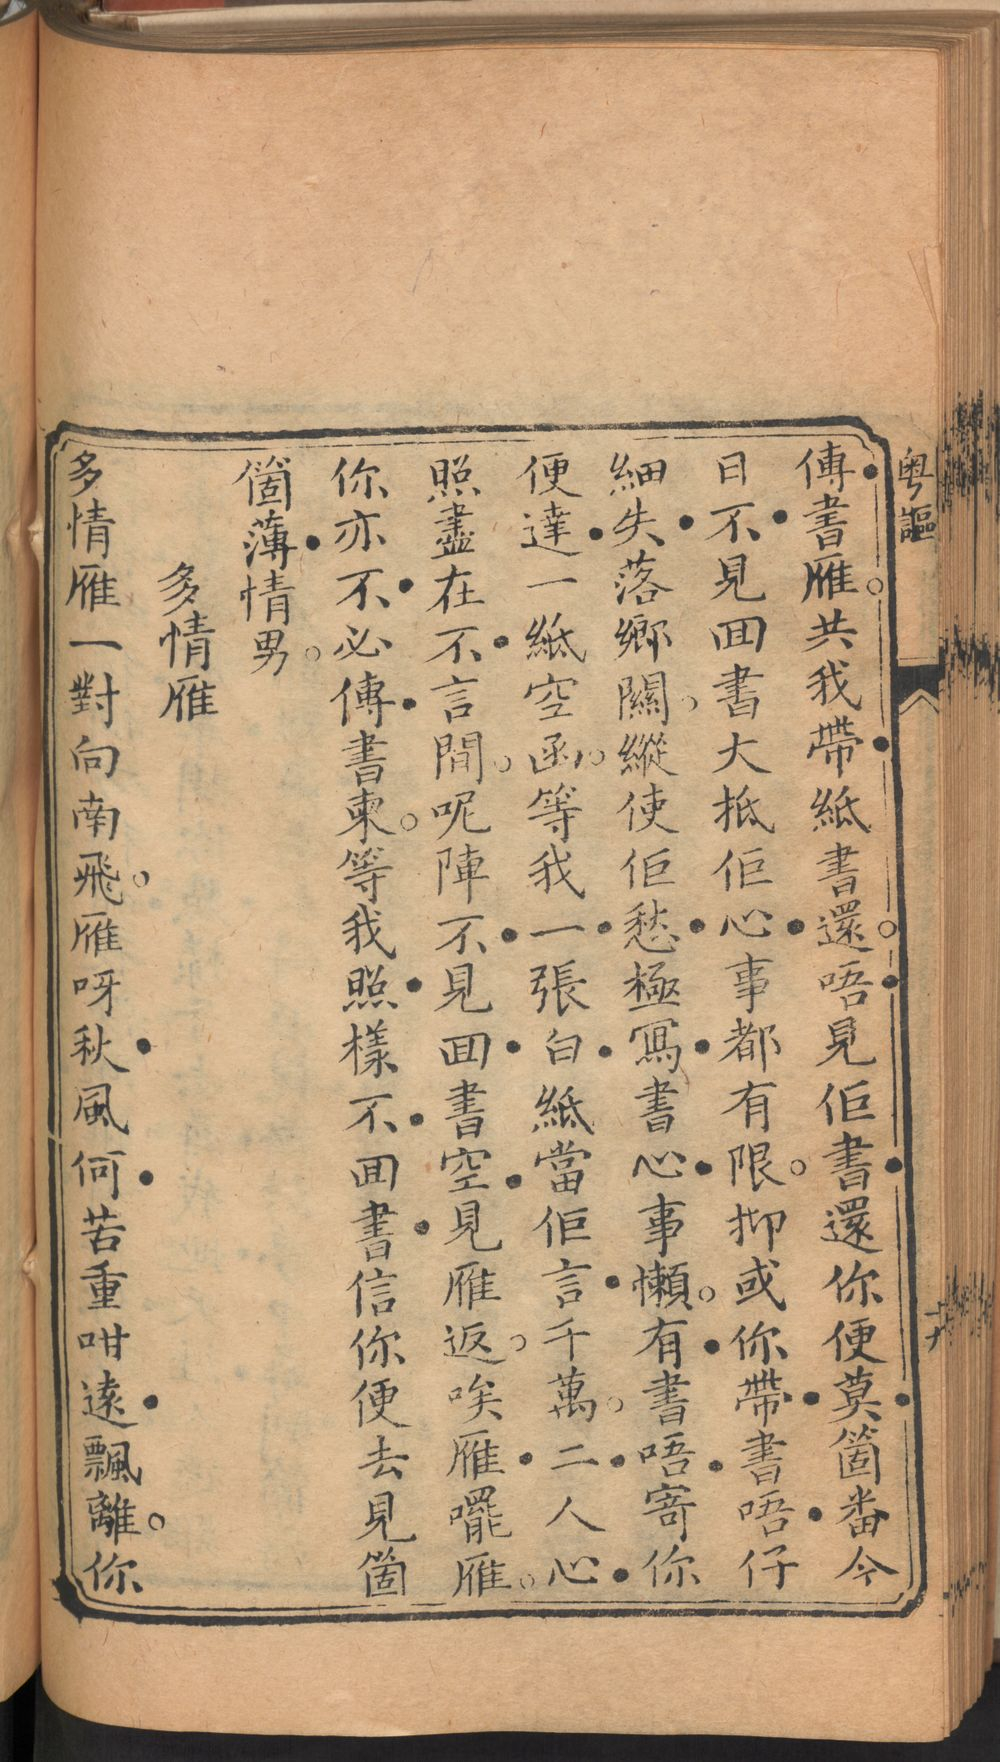 粤謳
傳書雁共我帶紙書還唔見佢書還你便莫箇番今
日不見囬書大抵佢心事都有限抑或你帶書唔仔
細失落鄉關縱使佢愁極寫書心事懶有書唔寄你
便達一紙空函等我一張白紙當佢言千萬二人心
照盡在不言間呢陣不見囬書空見雁返唉雁噃雁
你亦不必傳書柬等我照樣不囬書信你便去見箇
箇薄情男
多情雁
多情雁一對向南飛雁呀秋風何苦重咁遠飄離你
十六